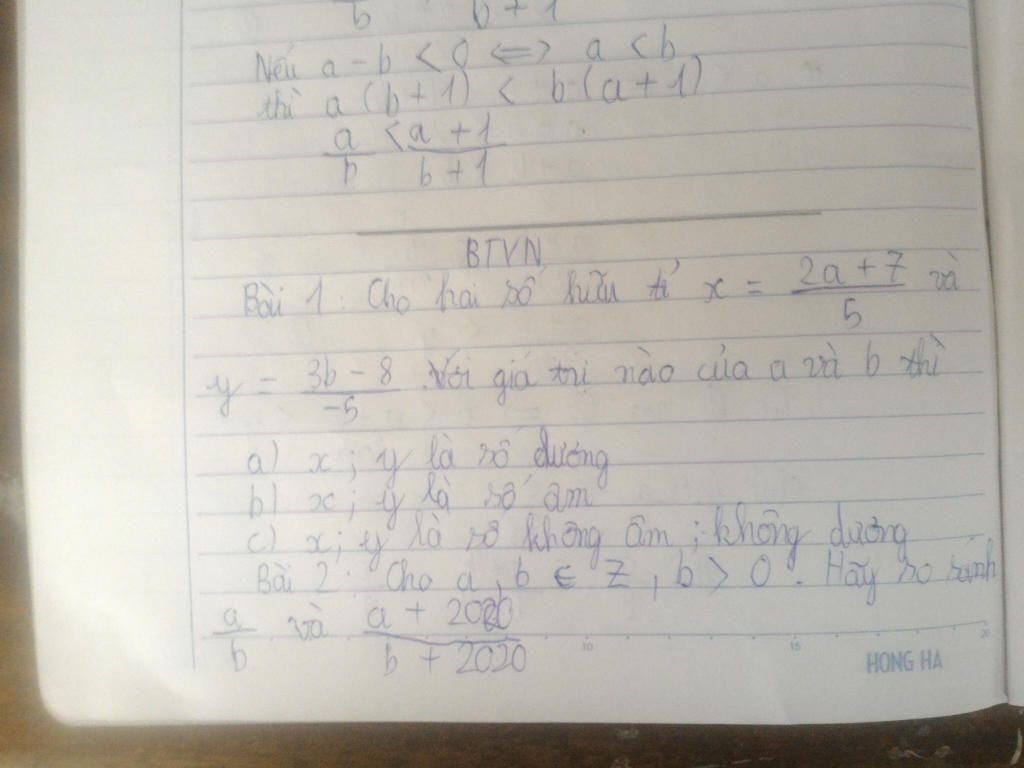 b b + 1
Nếu a - b < 0 <=> a < b
thì a (b + 1) < b (a + 1)
a/b < a + 1/b + 1
BTVN
Bài 1 : Cho hai số hữu tỉ x = 2a + 7/5 và
y = 3b - 8/-5 . Với giá trị nào của a và b thì
a) x ; y là số dương
b) x ; y là số âm
c) x ; y là số không âm ; không dương
Bài 2 : Cho a, b ∈ Z, b > 0 . Hãy so sánh
a/b và a + 2020/b + 2020
10 15 20
HONG HA